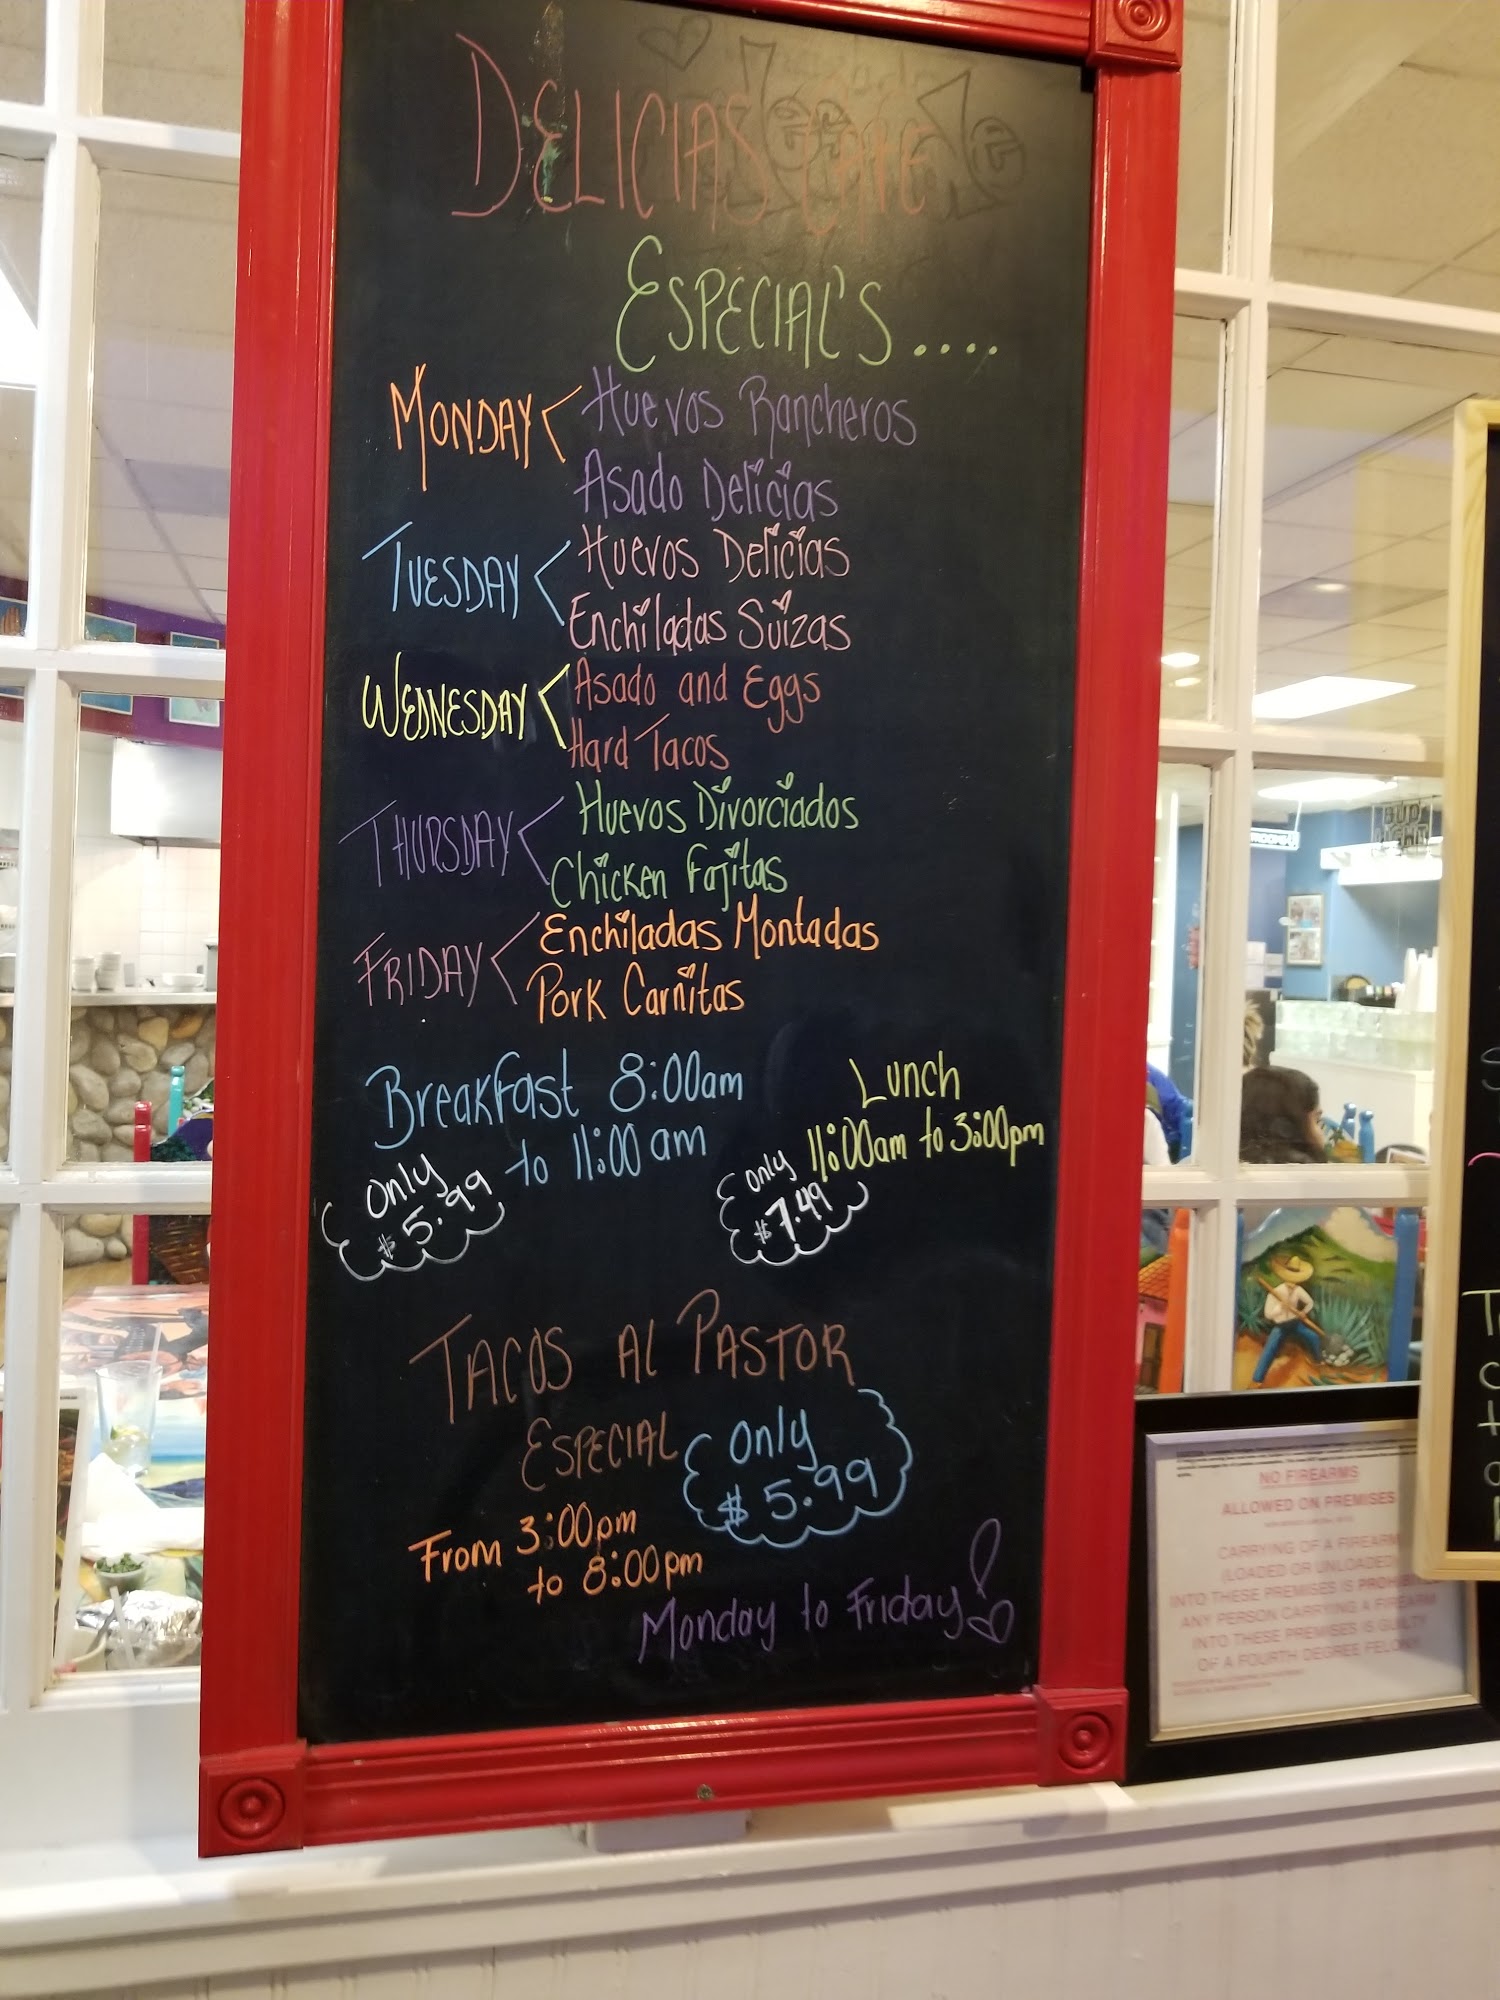 DELICIAS CAFE
ESPECIAL'S ....
MONDAY < Huevos Rancheros
Asado Delicias
TUESDAY < Huevos Delicias
Enchiladas Suizas
WEDNESDAY < Asado and Eggs
Hard Tacos
THURSDAY < Huevos Divorciados
Chicken Fajitas
FRIDAY < Enchiladas Montadas
Pork Carnitas
Breakfast 8:00am
to 11:00 am
only
$5.99
Lunch
11:00am to 3:00pm
only
$7.49
TACOS Al PASTOR
ESPECIAL
only
$5.99
From 3:00pm
to 8:00pm
Monday to Friday!
NO FIREARMS
ALLOWED ON PREMISES
CARRYING OF A FIREARM
(LOADED OR UNLOADED)
INTO THESE PREMISES IS
ANY PERSON CARRYING A FIREARM
INTO THESE PREMISES IS GUILTY
OF A FOURTH DEGREE FELONY